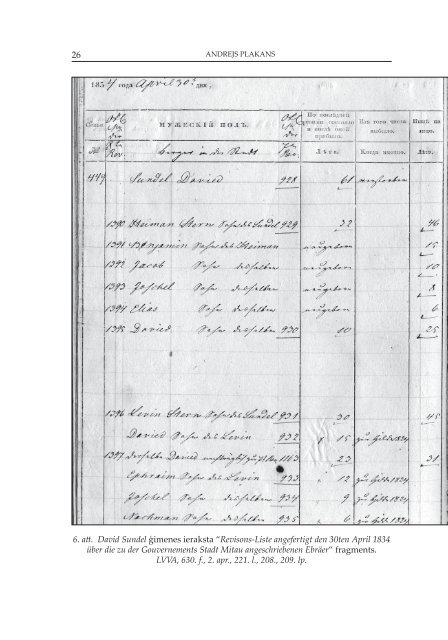 26
ANDREJS PLAKANS
1834 года April 30. дня.
МУЖЕСКІЙ ПОЛЪ.
По послѣдней
Изъ того числа выбыло.
Лѣта.
Когда именно.
Лѣта.
449 Sundel Davied 928 61 verstorben
1390 Heiman Stern Sohn des Sundel 929 32 46
1391 Benjamin Sohn des Heiman neugeboren 15
1392 Jacob Sohn desselben neugeboren 10
1393 Joschel Sohn desselben neugeboren 8
1394 Elias Sohn desselben neugeboren 6
1395 Davied Sohn desselben 930 10 25
1396 Levin Stern Sohn des Sundel 931 30 45
Davied Sohn des Levin 932 15 zur Gilde 1824
1397 derselbe Davied 1163 23 31
Ephraim Sohn des Levin 933 12 zur Gilde 1824
Joschel Sohn desselben 934 9 zur Gilde 1824
Nachman Sohn desselben 935 6 zur Gilde 1824
6. att. David Sundel ģimenes ieraksta “Revisons-Liste angefertigt den 30ten April 1834
über die zu der Gouvernements Stadt Mitau angeschriebenen Ebräer” fragments.
LVVA, 630. f., 2. apr., 221. l., 208., 209. lp.